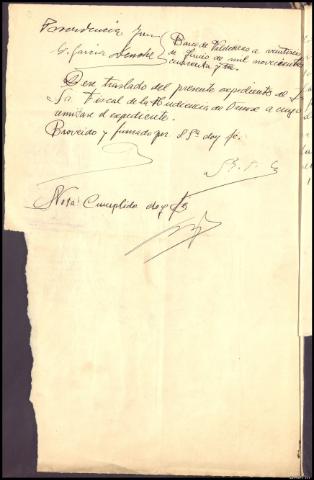 Providencia Juez
Sr. Garcia
Barco de Valdeorras a veintiocho
de Junio de mil novecientos
cuarenta y tres.
Dese traslado del presente expediente al
Sr. Fiscal de la Audiencia de Orense a cuyo
remitase el expediente.
Proveido y firmado por SSª doy fe.
Nota: Cumplido doy fe